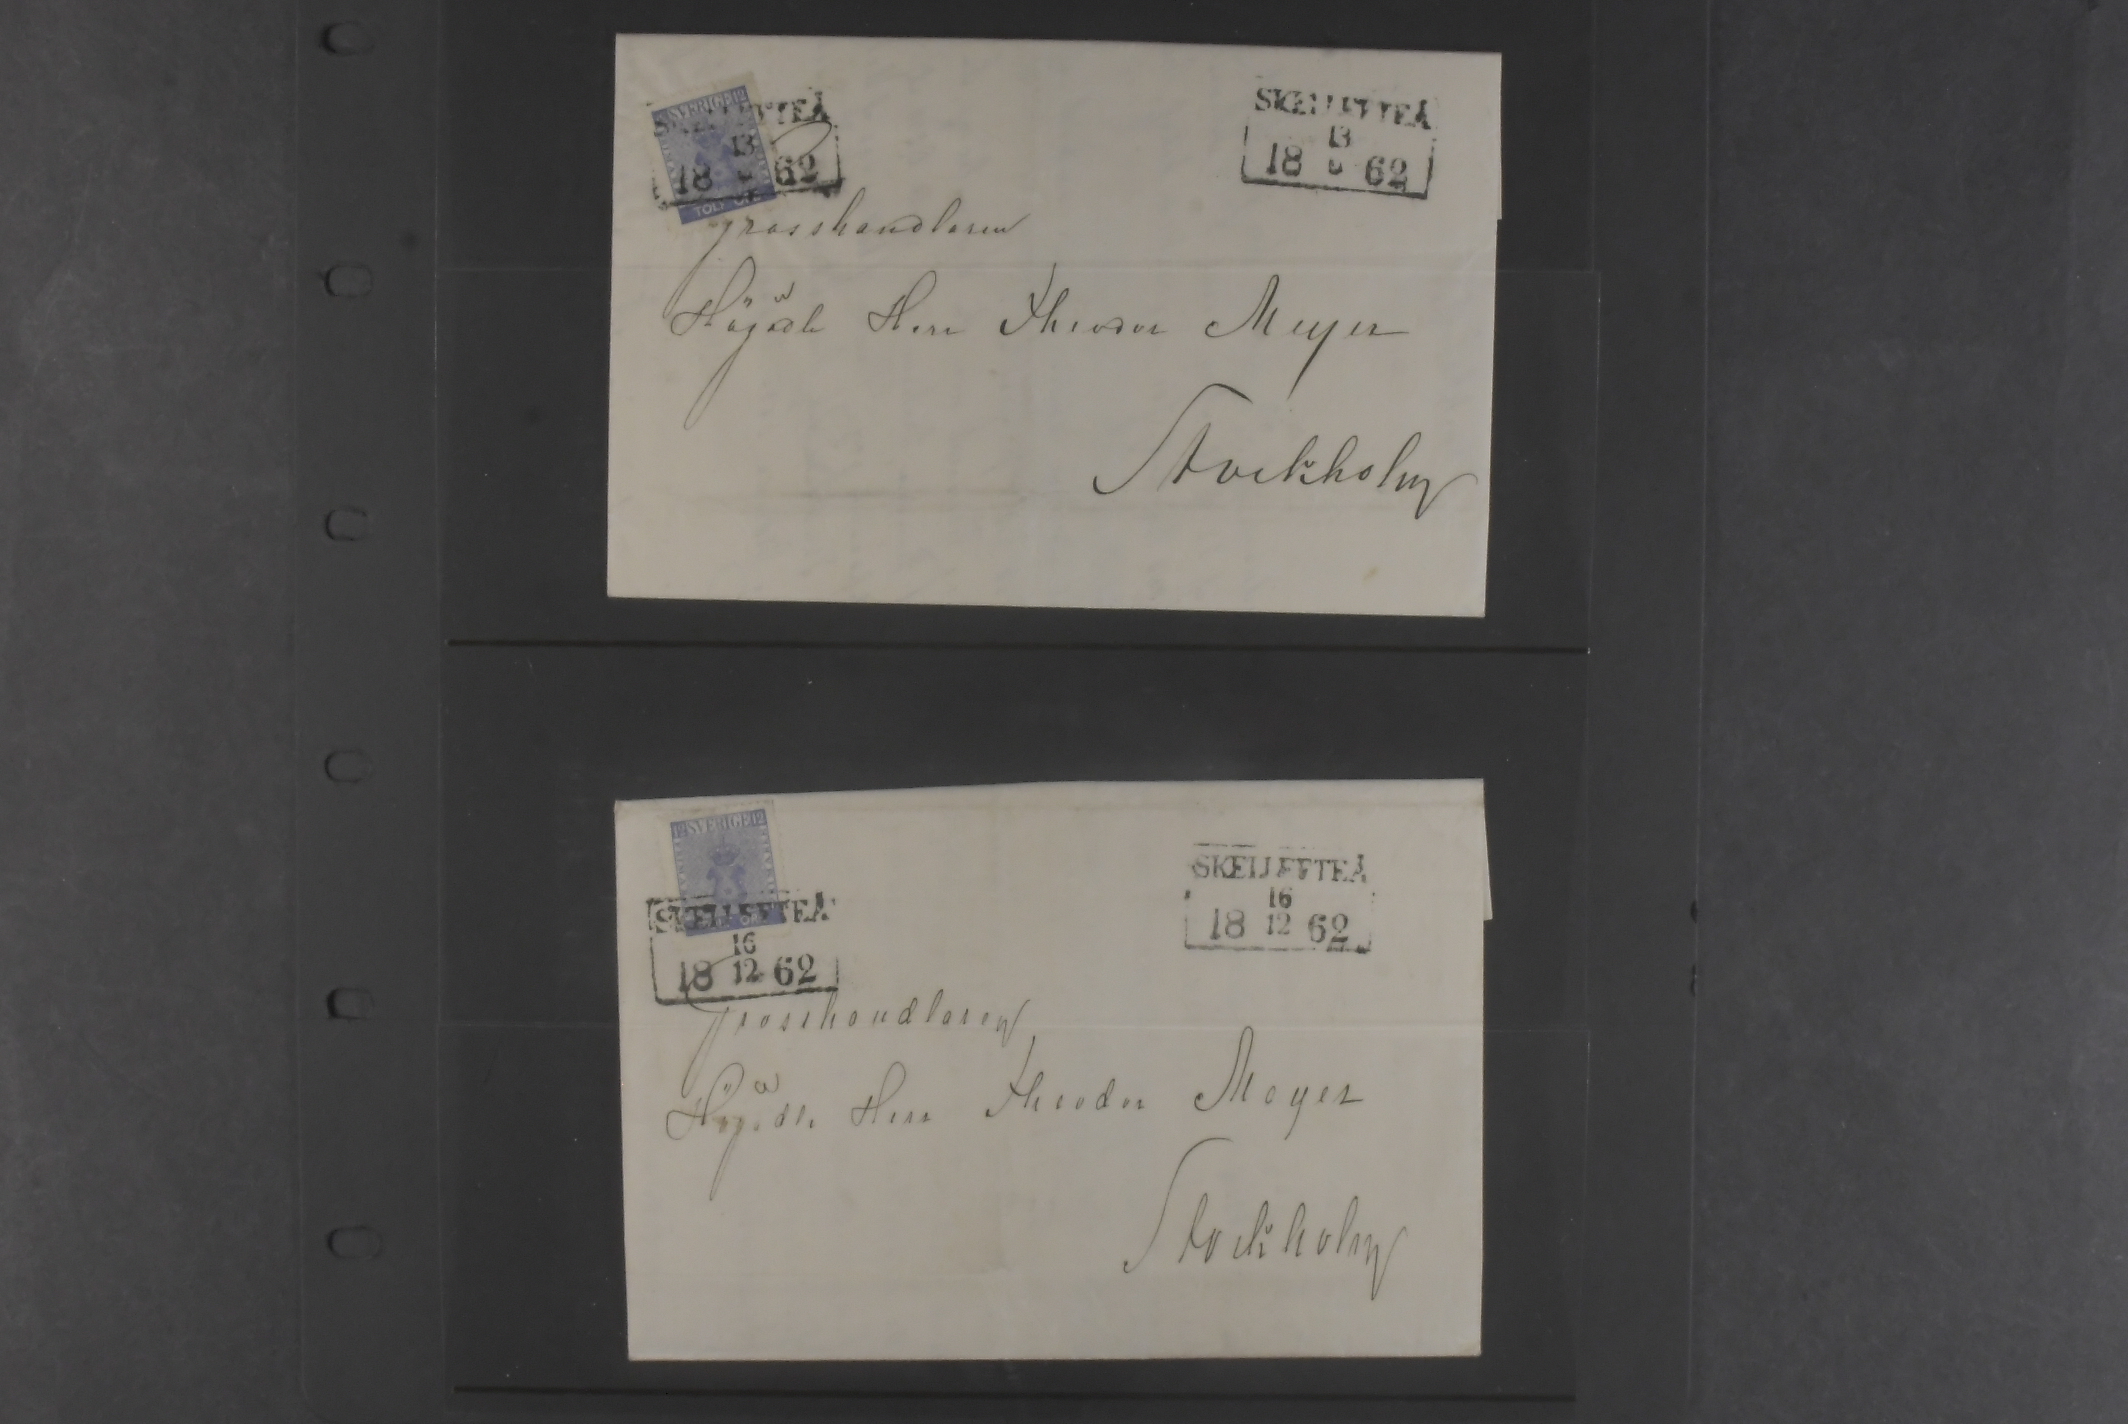 SVERIGE 12
SKELLEFTEÅ
13
18 62
TOLF
SKELLEFTEÅ
13
18 62
Grosshandlaren
Högädle Herr Theodor Meyer
Stockholm
12 SVERIGE 12
SKELLEFTEÅ
16
18 12 62
SKELLEFTEÅ
16
18 12 62
Grosshandlaren
Högädle Herr Theodor Meyer
Stockholm